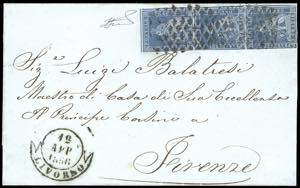 Sig.r Luigi Balatresi
Maestro di Casa di Sua Eccellenza
Il Principe Corsini a
Firenze
12
APR
LIVORNO